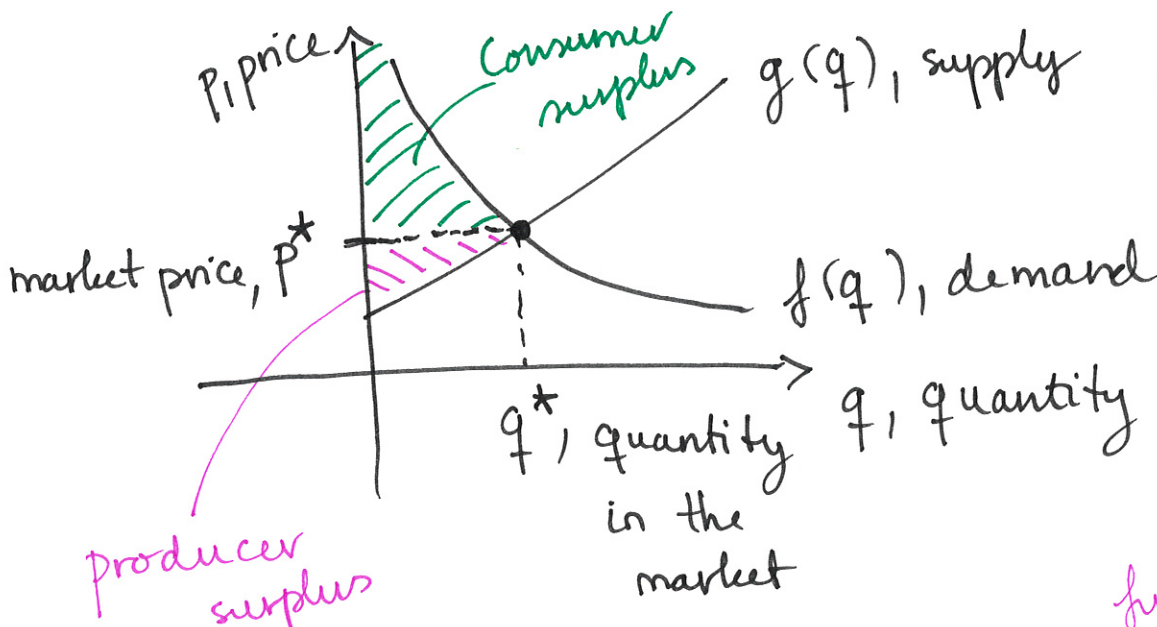 p, price
Consumer
surplus
g(q), supply
market price, p*
f(q), demand
q*, quantity
in the
market
q, quantity
producer
surplus